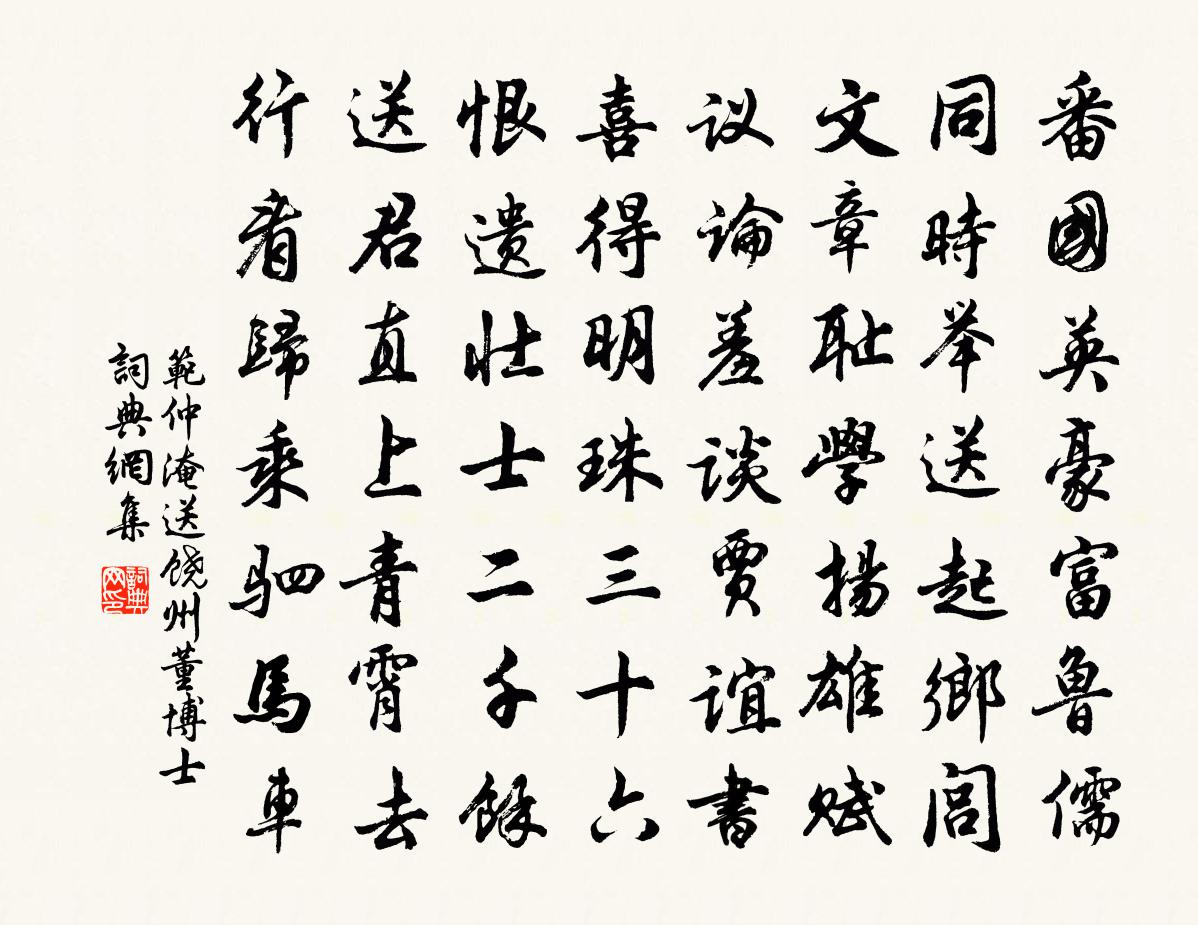 番國英豪富魯儒
同時举送起鄉閭
文章耻學揚雄赋
议論羞谈贾谊書
喜得明珠三十六
恨遗壮士二千餘
送君直上青霄去
行看歸乘驷馬車
範仲淹送饶州董博士
詞典網集
詞典網印